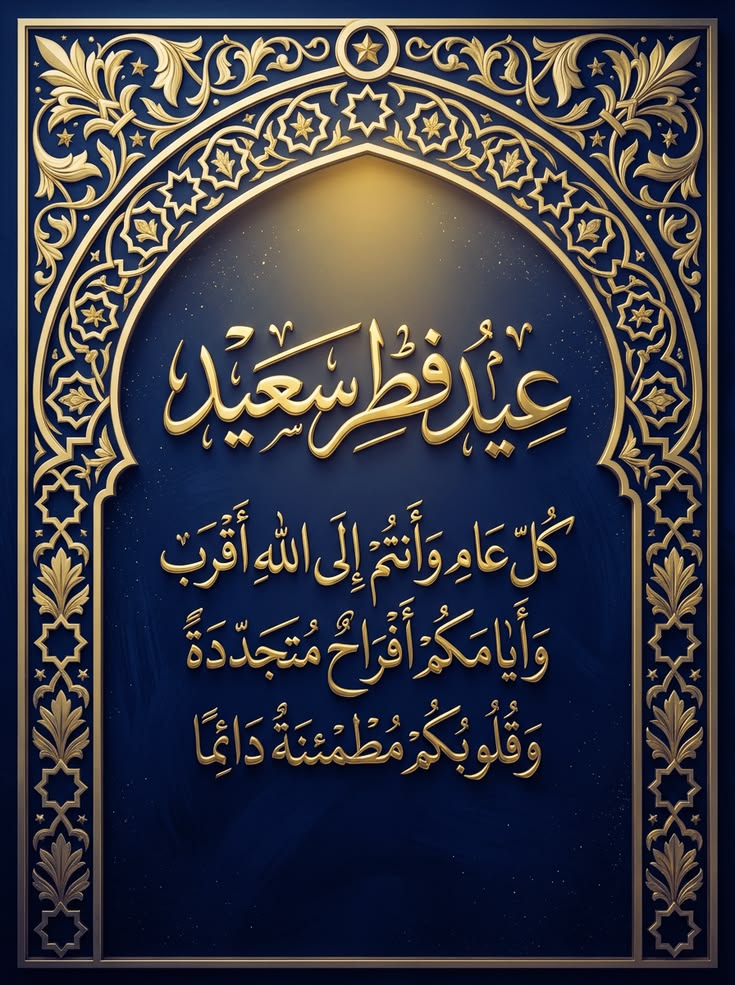 عِيدُ فِطْرٍ سَعِيد
كُلّ عَامِ وَأَنتُمْ إِلَى اللهِ أَقْرَبَ
وَأَيَامَكُمْ أَفْرَاحٌ مُتَجَدّدَةً
وَقُلُوبُكُمْ مُطْمئنَةٌ دَائِمًا